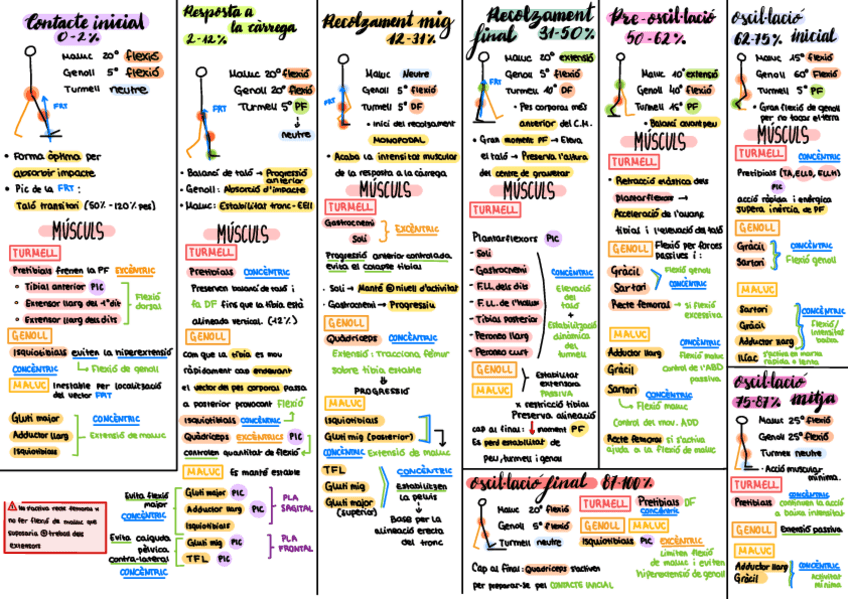 Contacte inicial
0-2%
Maluc 20° flexió
Genoll 5° flexió
Turmell neutre
FRT
• Forma òptima per
absorbir impacte
• Pic de la FRT:
Taló transitori (50% - 120% pes)
MÚSCULS
TURMELL
Pretibials frenen la PF EXCÈNTRIC
• Tibial anterior PIC
• Extensor llarg del 1r dit
• Extensor llarg dels dits
Flexió
dorsal
GENOLL
Isquiotibials eviten la hiperextensió
CONCÈNTRIC
Flexió de genoll
MALUC
Inestable per localització
del vector FRT
Gluti major
Adductor llarg
Isquiotibials
CONCÈNTRIC
Extensió de maluc
Resposta a
la càrrega
2-12%
Maluc 20° flexió
Genoll 20° flexió
Turmell 5° PF
neutre
FRT
• Balanceig de taló → Progressió
anterior
• Genoll: Absorció d'impacte
• Maluc: Estabilitat tronc-EEII
MÚSCULS
TURMELL
Pretibials CONCÈNTRIC
Preserven balanceig de taló i
fa DF fins que la tíbia està
alineada vertical. (12%)
GENOLL
Com que la tíbia es mou
ràpidament cap endavant
el vector del pes corporal passa
a posterior provocant Flexió
Isquiotibials CONCÈNTRIC
Quàdriceps EXCÈNTRICS PIC
controlen quantitat de flexió
MALUC
Es manté estable
Evita flexió
major
CONCÈNTRIC
Gluti major PIC
Adductor llarg PIC
Isquiotibials
PLA
SAGITAL
Evita caiguda
pèlvica
contra-lateral
CONCÈNTRIC
Gluti mig PIC
TFL PIC
PLA
FRONTAL
Recolzament mig
12-31%
Maluc Neutre
Genoll 5° flexió
Turmell 5° DF
FRT
• Inici del recolzament
MONOPODAL
• Acaba la intensitat muscular
de la resposta a la càrrega
MÚSCULS
TURMELL
Gastrocnemi
Soli
EXCÈNTRIC
Progressió anterior controlada
evita el colapse tibial
• Soli → Manté nivell d'activitat
• Gastrocnemi → Progressiu
GENOLL
Quàdriceps CONCÈNTRIC
Extensió: Tracciona fèmur
sobre tíbia estable
PROGRESSIÓ
MALUC
Isquiotibials
Gluti mig (posterior)
CONCÈNTRIC Extensió de maluc
TFL
Gluti mig
Gluti major
(superior)
CONCÈNTRIC
Estabilitzen
la pelvis
Base per la
alineació erecta
del tronc
Recolzament
final 31-50%
Maluc 20° extensió
Genoll 5° flexió
Turmell 10° DF
• Pes corporal més
anterior del C.M.
• Gran moment PF → Eleva
el taló → Preserva l'altura
del centre de gravetat
MÚSCULS
TURMELL
Plantarflexors PIC
- Soli
- Gastrocnemi
- F.LL. dels dits
- F.LL. de l'hallux
- Tibial posterior
- Peroneo llarg
- Peroneo curt
CONCÈNTRIC
Elevació
del taló
+
Estabilització
dinàmica
del turmell
GENOLL
MALUC
Estabilitat
extensora
PASSIVA
x restricció tibial
Preserva alineació
cap al final: ↓ moment PF
Es perd estabilitat de
peu, turmell i genoll
Pre-oscil·lació
50-62%
Maluc 10° extensió
Genoll 40° flexió
Turmell 15° PF
• Balanceig avantpeu
MÚSCULS
TURMELL
• Retracció elàstica dels
plantarflexors →
Acceleració de l'avanç
tibial i l'elevació del taló
GENOLL Flexió per forces
passives i:
Gràcil
Sartori
Flexió genoll
CONCÈNTRIC
Recte femoral → si flexió
excessiva
MALUC
Adductor llarg
Gràcil
Sartori
Flexió maluc
control de l'ABD
passiva
CONCÈNTRIC
Flexió maluc
Control del mov. ADD
Recte femoral si s'activa
ajuda a la flexió de maluc
Oscil·lació
62-75% inicial
Maluc 15° flexió
Genoll 60° flexió
Turmell 5° PF
• Gran flexió de genoll
per no tocar el terra
MÚSCULS
TURMELL
CONCÈNTRIC
Pretibials (TA, ELLD, ELLH)
PIC
acció ràpida i enèrgica
supera inèrcia de PF
GENOLL
Gràcil
Sartori
CONCÈNTRIC
Flexió genoll
MALUC
Sartori
Gràcil
Adductor llarg
Ilíac
CONCÈNTRIC
Flexió/
intensitat
baixa
s'activa en marxa
ràpida o lenta
Oscil·lació
75-87% mitja
Maluc 25° flexió
Genoll 25° flexió
Turmell neutre
• Acció muscular
mínima.
TURMELL
CONCÈNTRIC
Pretibials continuen la acció
a baixa intensitat
GENOLL Extensió passiva
MALUC
Adductor llarg
Gràcil
CONCÈNTRIC
Activitat
mínima
Oscil·lació final 87-100%
Maluc 20° flexió
Genoll 5° flexió
Turmell neutre
TURMELL Pretibials DF
concèntric
GENOLL MALUC
Isquiotibials PIC EXCÈNTRIC
Limiten flexió
de maluc i eviten
hiperextensió de genoll
Cap al final: Quàdriceps s'activen
per preparar-se pel CONTACTE INICIAL